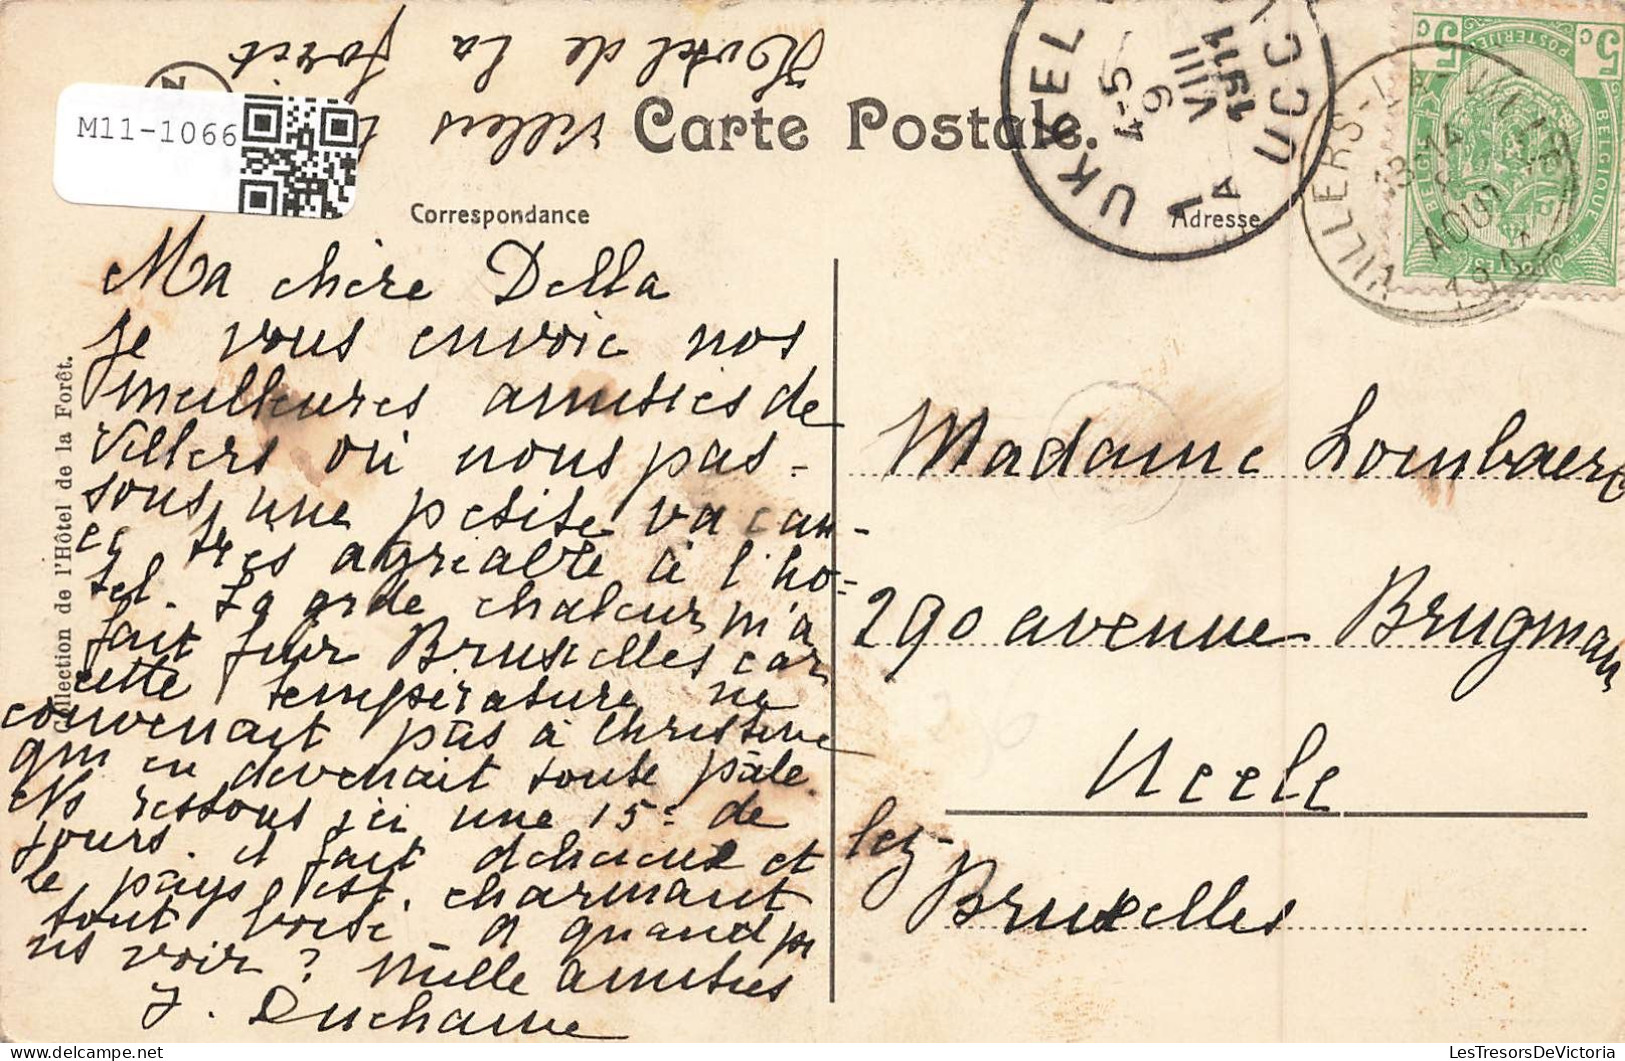 Hotel de la forêt
Villers
M11-1066
Carte Postale.
Correspondance
Adresse
UKKEL
4-5
9
VIII
1911
A
UCCLE
VILLERS-LA-VILLE
14
AOUT
5c 5c
POSTERIJEN
BELGIQUE
BELGIË
POSTES
Collection de l'Hôtel de la Forêt.
Ma chère Della
Je vous envoie nos
meilleures amitiés de
Villers où nous pas-
sons une petite vacan-
ce très agréable à l'ho-
tel. La grde chaleur m'a
fait fuir Bruxelles car
cette température ne
convenait pas à Christine
qui en devenait toute pâle.
Ns ressons ici une 15e de
jours. il fait délicieux et
le pays est charmant
tout boisé. A quand pr
ns voir? Mille amitiés
J. Duchaine
Madame Lombaerts
290 avenue Brugman
Uccle
lez-
Bruxelles
LesTresorsDeVictoria.com